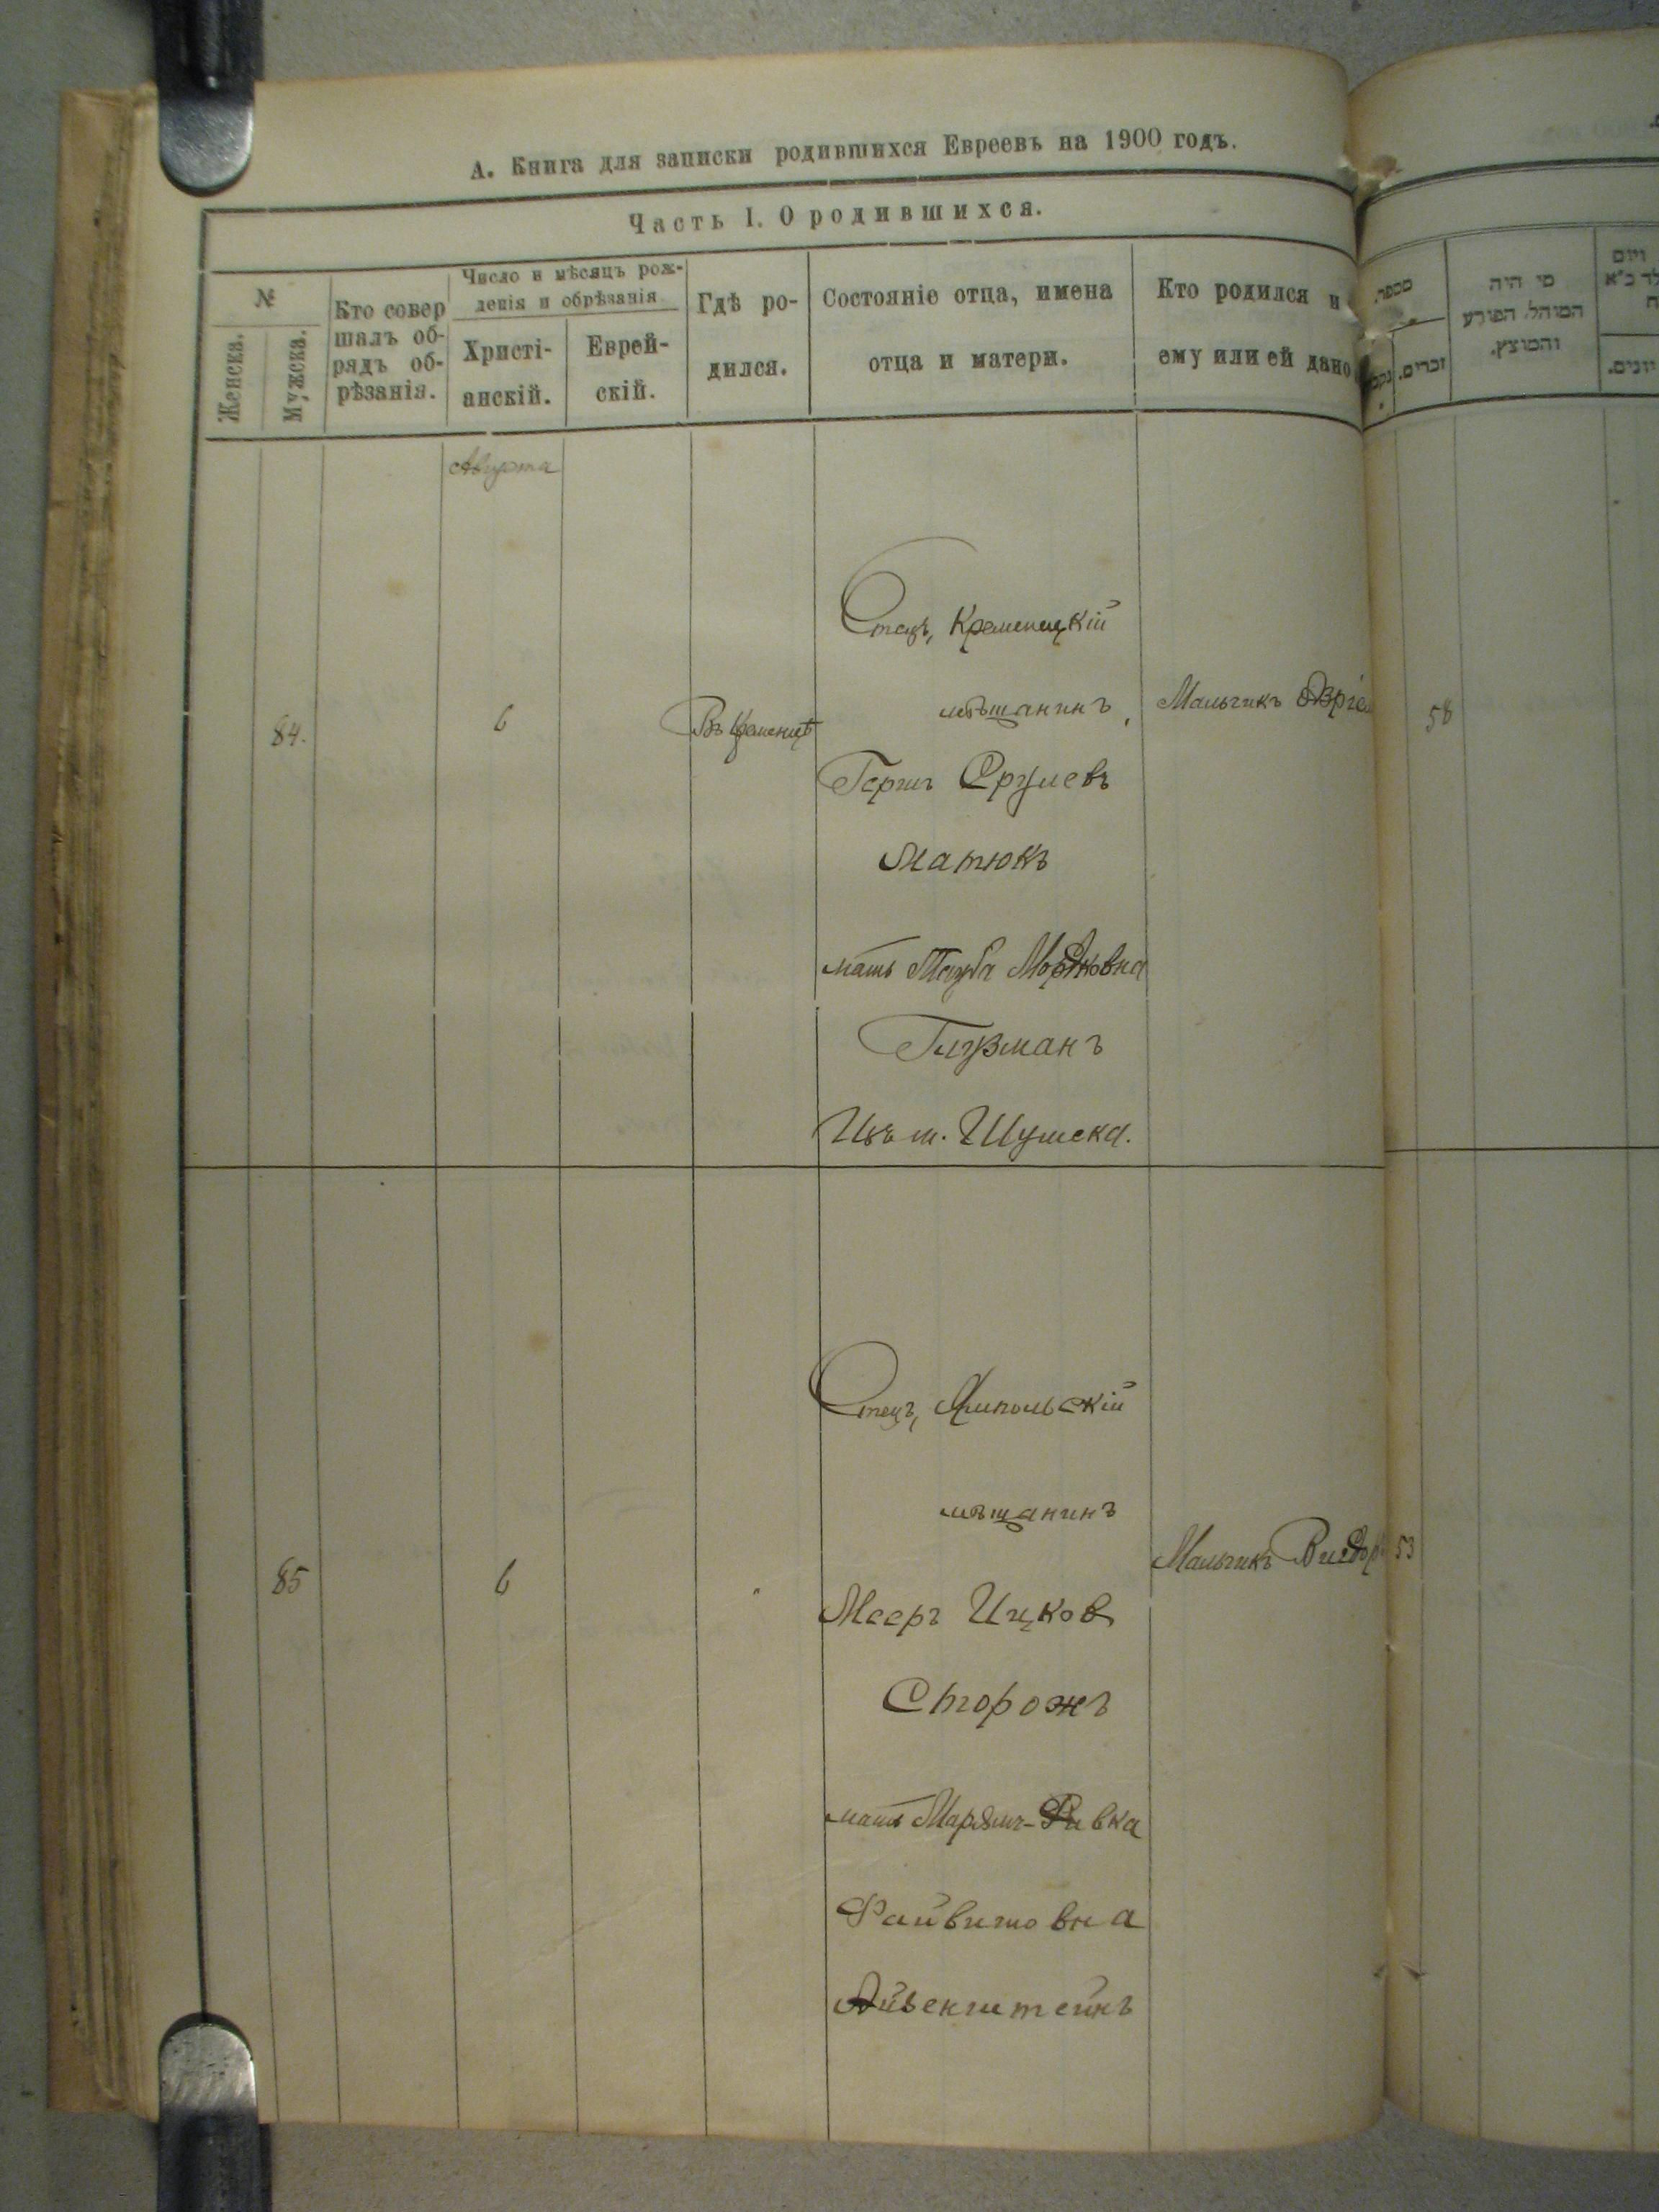 А. Книга для записки родившихся Евреевъ на 1900 годъ.
Часть I. О родившихся.
№
Женска.
Мужска.
Кто совер
шалъ об-
рядъ об-
рѣзанія.
Число и мѣсяцъ рож-
денія и обрѣзанія
Христі-
анскій.
Еврей-
скій.
Гдѣ ро-
дился.
Состояніе отца, имена
отца и матери.
Кто родился и
ему или ей дано
מספר.
זכרים.
מי היה
המוהל, הפורע
והמוצץ.
Августа
84.
6
Въ Кременцѣ
Отецъ, Кременецкій
мѣщанинъ,
Гершъ Срулевъ
Матюкъ
мать Тауба Мордковна
Глузманъ
Изъ м. Шумска.
Мальчикъ Азріель
58
85
6
"
Отецъ, Ямпольскій
мѣщанинъ
Мееръ Ицков
Сторожъ
мать Марьямъ-Ривка
Файвишовна
Айзенштейнъ
Мальчикъ
53